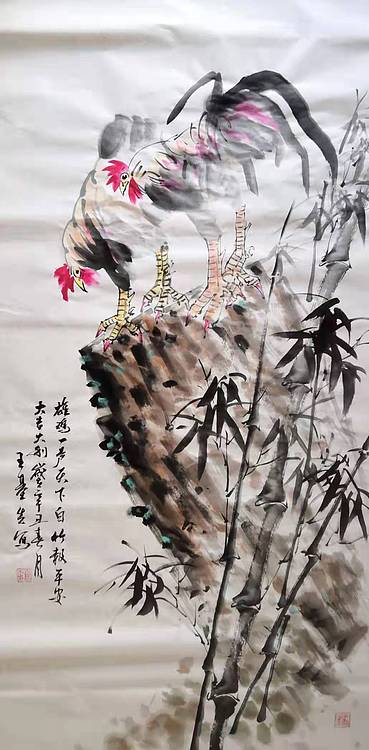 雄鸡一声天下白竹報平安
大吉大利歲辛丑春月
王生写